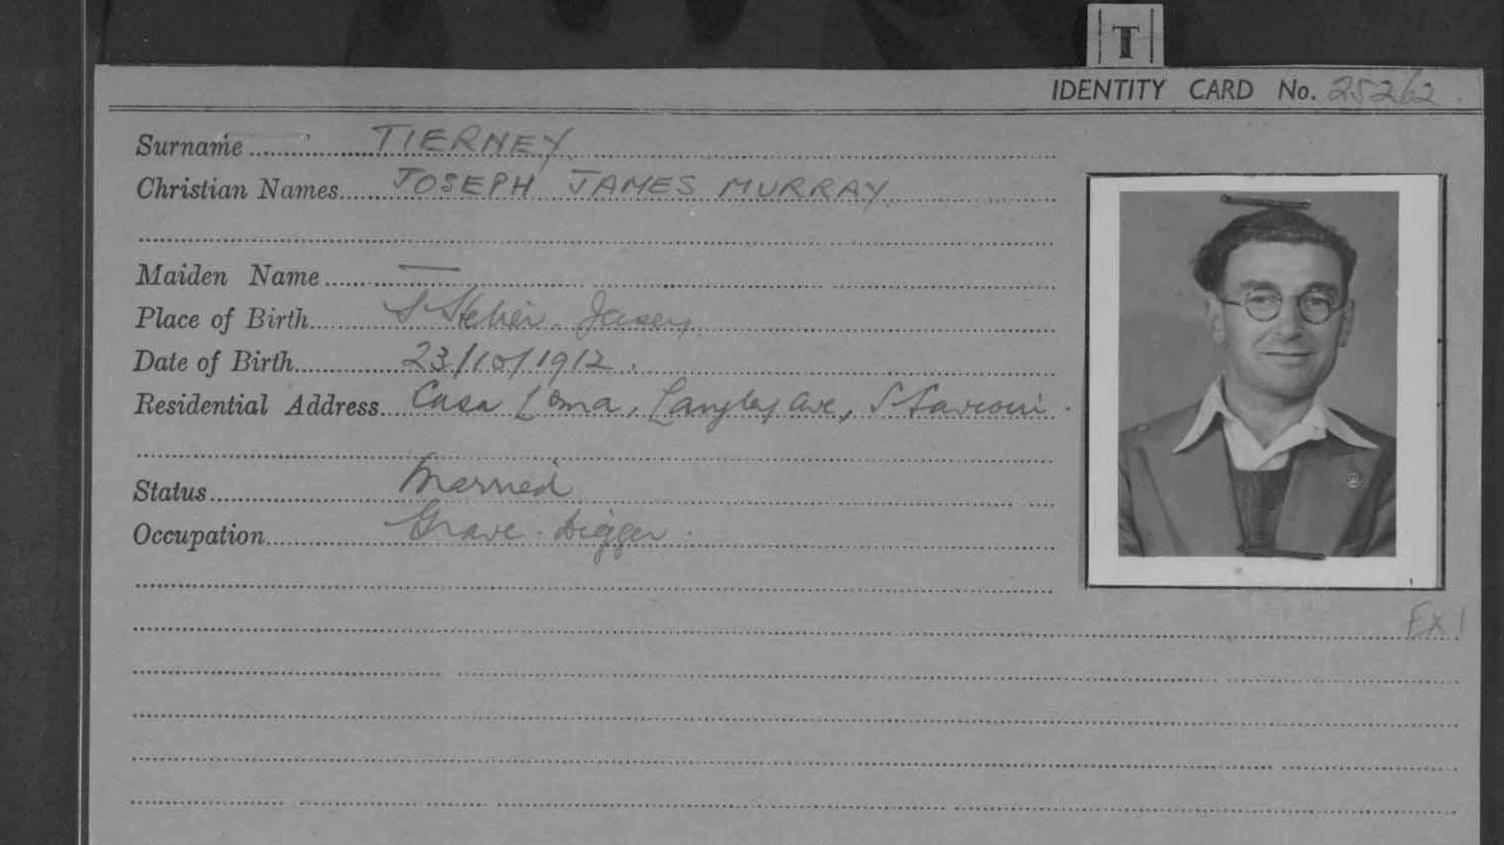 T
IDENTITY CARD No. 25262.
Surname TIERNEY
Christian Names JOSEPH JAMES MURRAY.
Maiden Name —
Place of Birth St Helier. Jersey.
Date of Birth 23/10/1912.
Residential Address Casa Loma, Langley Ave, St Saviour.
Status Married
Occupation Grave-digger.
Ex 1